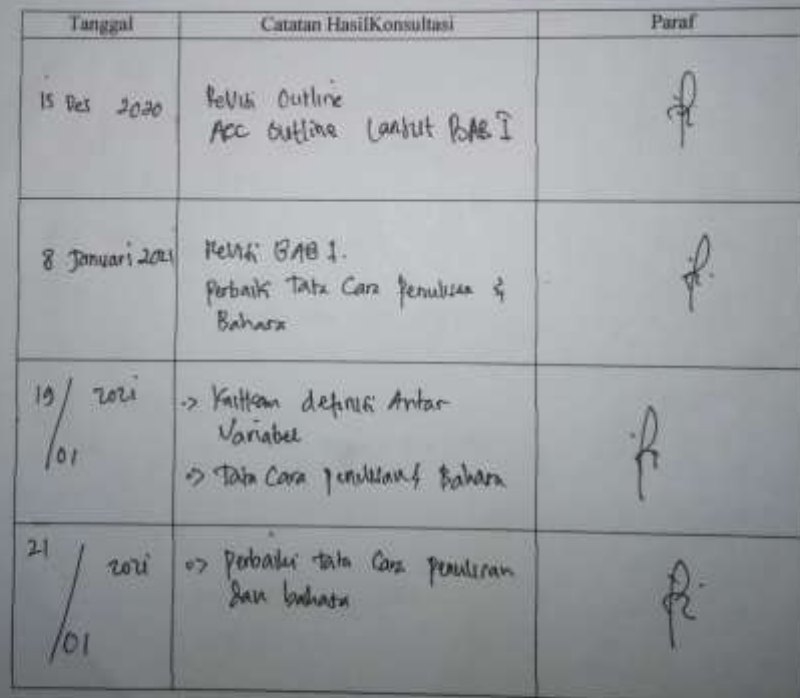 Tanggal Catatan HasilKonsultasi Paraf
15 Des 2020 Revisi Outline
ACC Outline Lanjut BAB I
8 Januari 2021 Revisi BAB I.
Perbaiki Tata Cara Penulisan &
Bahasa
19/01 2021 -> Kaitkan definisi Antar
Variabel
-> Tata Cara penulisan & Bahasa
21/01 2021 -> Perbaiki tata Cara penulisan
dan bahasa